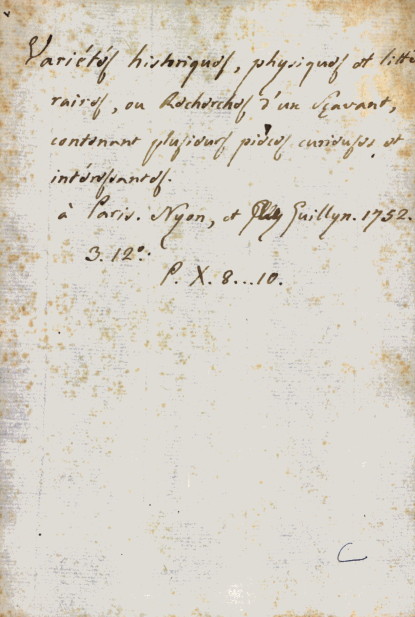 Variétés histriques, physiques et litté
raires, ou Recherches d'un Sçavant,
contenant plusieurs pièces curieuses et
intéressantes.
à Paris. Nyon, et Guillyn. 1752.
3. 12°.
P. X. 8...10.
C